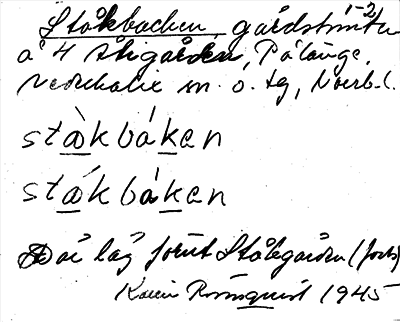 Ståkbacken, gårdstomter 1-2
å 4 Stigården, Pålänge,
Nederkalix sn o. tg, Norrb. l.
stæ̀kbáken
stǽkbáken
Där låg förut Stålegården (forts)
Karin Rosenquist 1945